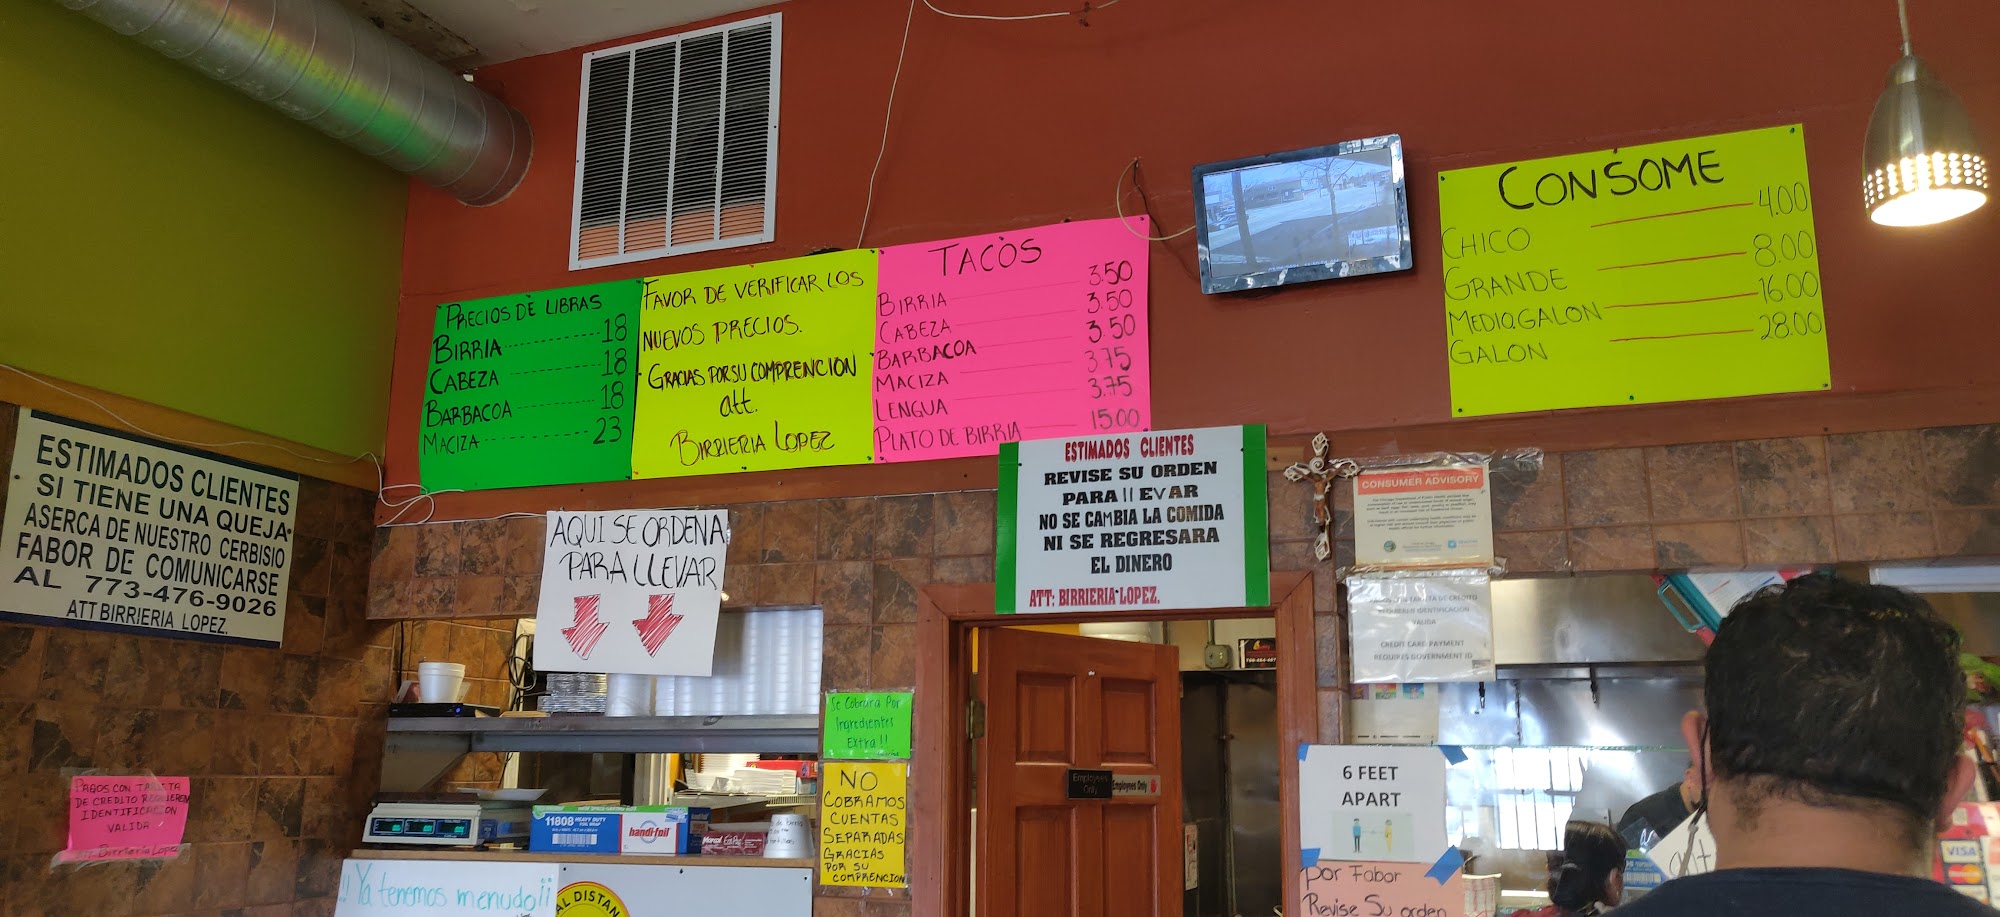 ESTIMADOS CLIENTES
SI TIENE UNA QUEJA
ASERCA DE NUESTRO CERBISIO
FABOR DE COMUNICARSE
AL 773-476-9026
ATT BIRRIERIA LOPEZ.
PAGOS CON TARJETA
DE CREDITO REQUIEREN
IDENTIFICACION
VALIDA
Att. Birrieria Lopez
PRECIOS DE LIBRAS
BIRRIA 18
CABEZA 18
BARBACOA 18
MACIZA 23
FAVOR DE VERIFICAR LOS
NUEVOS PRECIOS.
GRACIAS POR SU COMPRENCION
att.
BIRRIERIA LOPEZ
TACOS
BIRRIA 3.50
CABEZA 3.50
BARBACOA 3.50
MACIZA 3.75
LENGUA 3.75
PLATO DE BIRRIA 15.00
CONSOME
CHICO 4.00
GRANDE 8.00
MEDIO.GALON 16.00
GALON 28.00
AQUI SE ORDENA
PARA LLEVAR
ESTIMADOS CLIENTES
REVISE SU ORDEN
PARA llEVAR
NO SE CAMBIA LA COMIDA
NI SE REGRESARA
EL DINERO
ATT: BIRRIERIA LOPEZ.
CONSUMER ADVISORY
REQUIEREN IDENTIFICACION
VALIDA
CREDIT CARD PAYMENT
REQUIRES GOVERNMENT ID
Se Cobrara Por
Ingredientes
Extra!!
NO
COBRAMOS
CUENTAS
SEPARADAS
GRACIAS
POR SU
COMPRENCION
Employees
Only
Employees Only
11808 HEAVY DUTY
handi-foil
!!Ya tenemos menudo¡¡
AL DISTAN
6 FEET
APART
por Favor
Revise Su orden
VISA